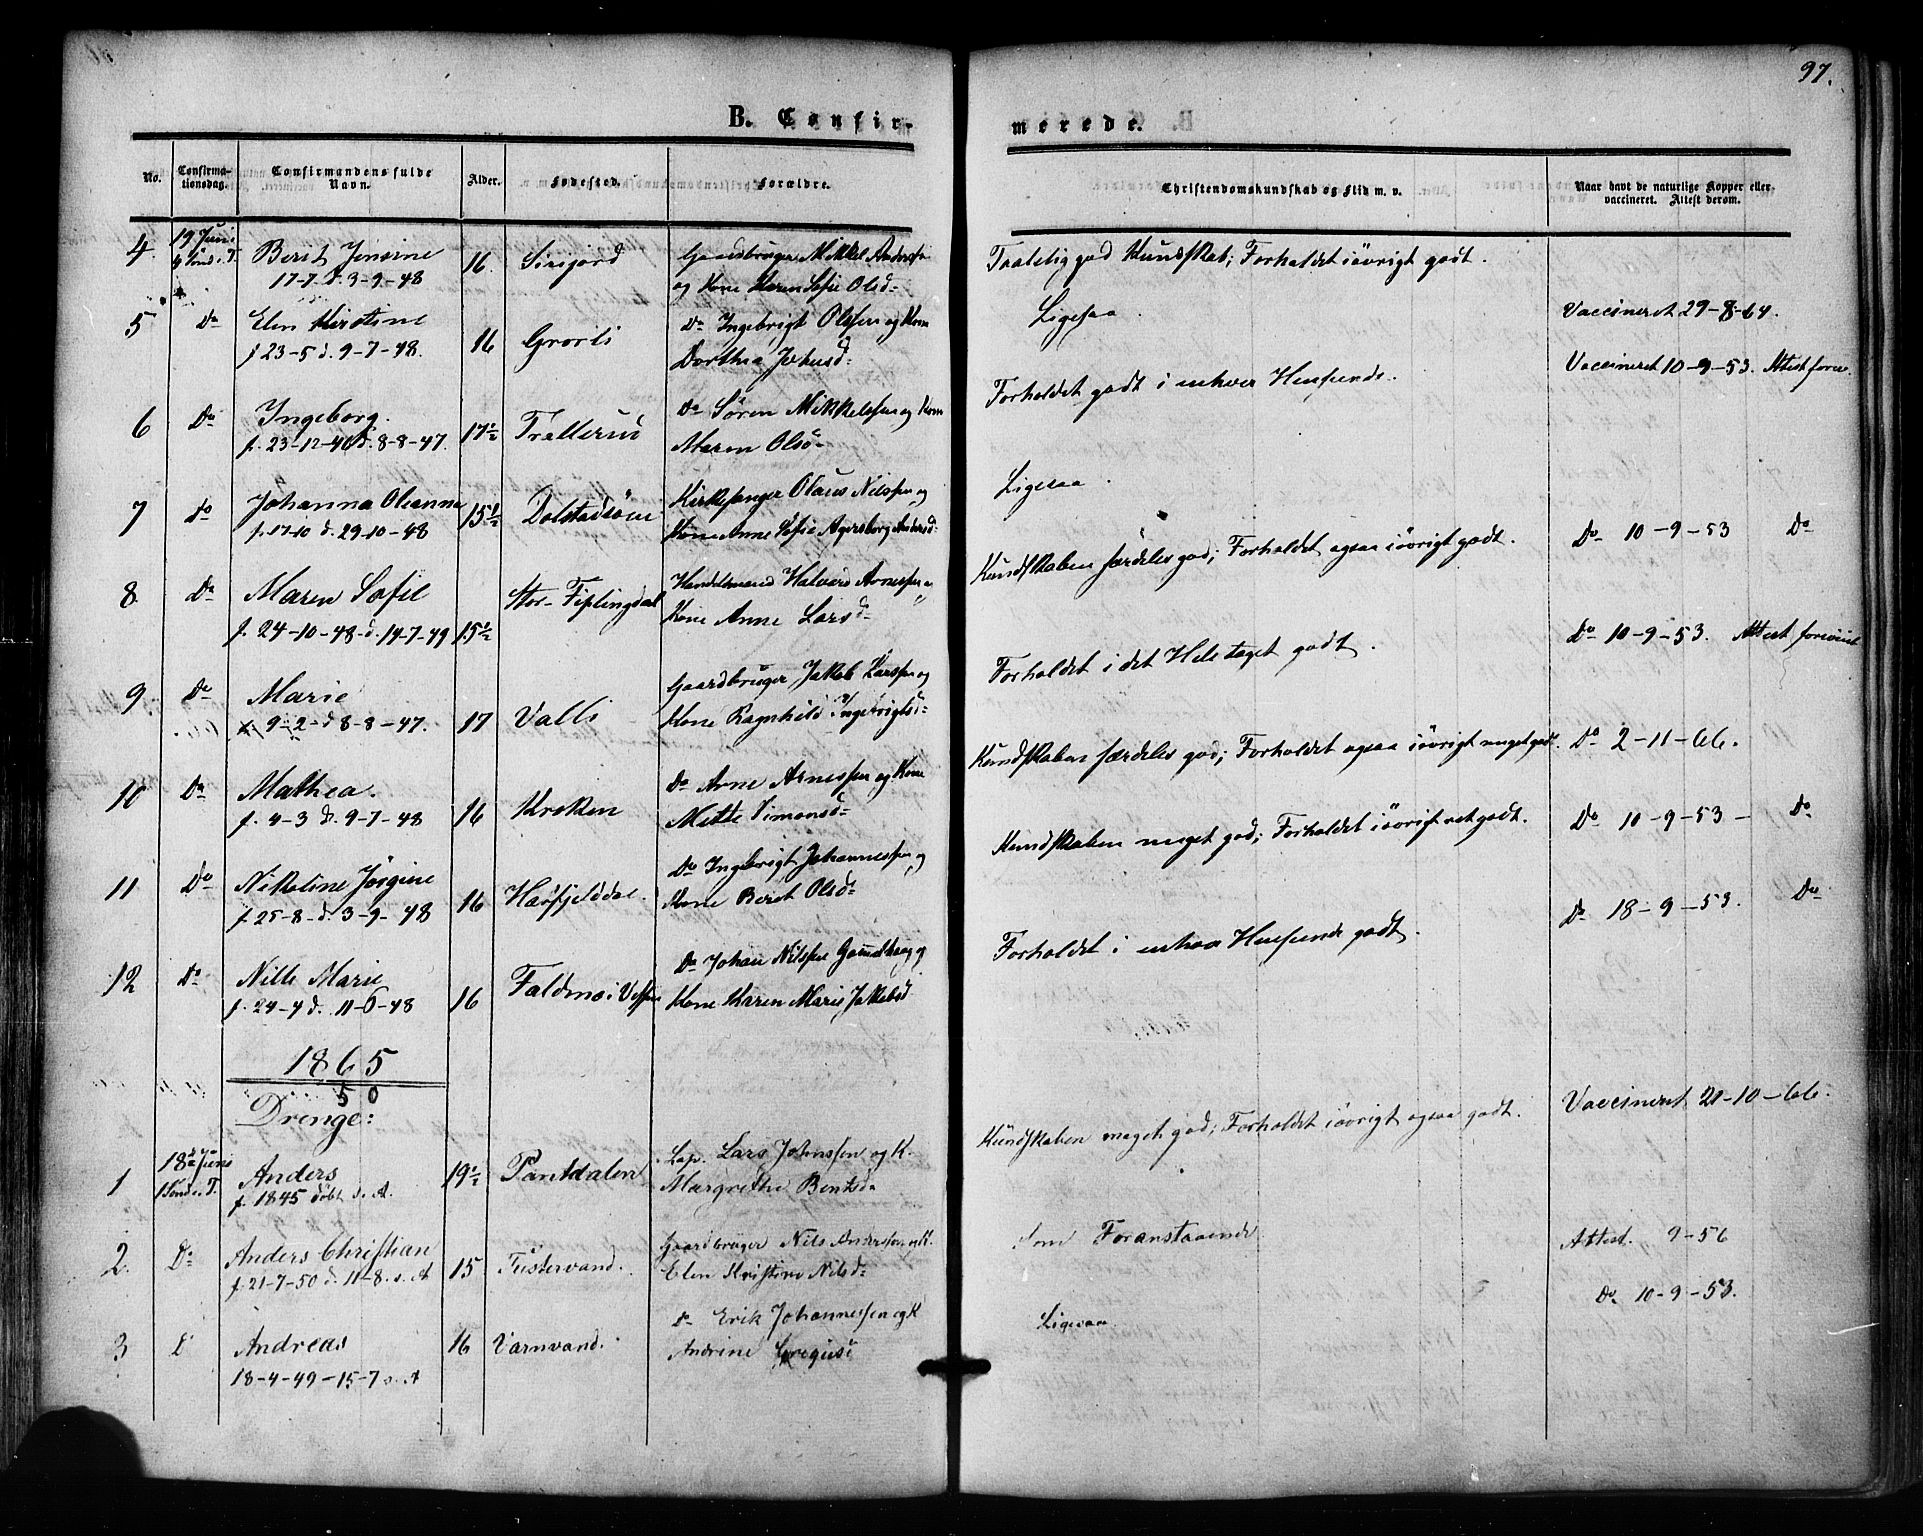 97.
B. Confir-
merede.
No.
Confirma-
tionsdag.
Confirmandens fulde
Navn.
Alder.
Fødested.
Forældre.
Christendomskundskab og Flid m. v.
Naar havt de naturlige Kopper eller
vaccineret. Attest derom.
4 19 Juni Berit Jensine 16. Gaardbruger Mikkel Anders
17-7 d. 3-9-48 og Kone Karen Sofie Olsd
Taalelig god Kundskab; Forholdet iøvrigt godt.
5 Do Elen Kirstine 16 Grorli Do Ingebrigt Olssen og Kone
f. 23-5 d. 9-7-48. Dorthea Johnsd
Ligesaa. Vaccineret 29-8-64.
6 Do Ingeborg. 17½ Trallerud Do Søren Mikkelssen og Kone
f. 23-12-46 d. 8-8-47. Maren Olsd
Forholdet godt i enhver Henseende. Vaccineret 10-9-53. Attest forev.
7 Do Johanna Oleanna 15½ Dolstadsøen Kirkesanger Olaus Nilssen og
f. 17-10 d. 29-10-48 Kone Anne Sofie Agersborg Andersd
Ligesaa.
8 Do Maren Sofie 15½ Stor-Fiplingdal Handelsmand Halvor Arnessen og
f. 24-10-48 d. 14-7-49 Kone Anne Larsd
Kundskaben særdeles god; Forholdet ogsaa iøvrigt godt. Do 10-9-53 Do
9 Do Marie 17 Valli Gaardbruger Jakob Larssen og
9-2 d 8-8-47. Kone Ragnhild Ingebrigtsd
Forholdet i det Hele taget godt. Do 10-9-53. Attest forevist
10 Do Mathea. 16 Kroken Do Arne Arnessen og Kone
f. 4-3 d. 9-7-48 Mette Simonsd
Kundskaben særdeles god; Forholdet ogsaa iøvrigt meget godt. Do 2-11-66.
11 Do Nikoline Jørgine 16 Harfjelddal. Do Ingebrigt Johannessen og
f. 25-8 d. 3-9-48 Kone Beret Olsd
Kundskaben meget god; Forholdet iøvrigt ret godt. Do 10-9-53 Do
12 Do Nille Marie 16 Faldmo i Vefsen Do Johan Nilssen og
f. 24-4 d. 11-6-48 Kone Karen Marie Jakobsd
Forholdet i enhver Henseende godt. Do 18-9-53. Do
1865
50
Drenge:
1 18de Juni Anders 19½ Pantdalen Lap. Lars Johnssen og K.
1 Sønd e. T. f. 1845 døbt s. A. Margrethe Bentsd
Kundskaben meget god; Forholdet iøvrigt ogsaa godt. Vaccineret 21-10-66.
2. Do Anders Christian 15 Tustervand. Gaardbruger Nils Anderssen og K.
f. 21-7-50 d. 11-8. s. A Elen Kristine Nilsd
Som Foranstaaende Attest. 9-56
3 D Andreas 16 Varnvand. Do Erik Johannessen og K
18-4-49-15-7 s. A Andrine Gregusd
Ligesaa. Do 10-9-53.